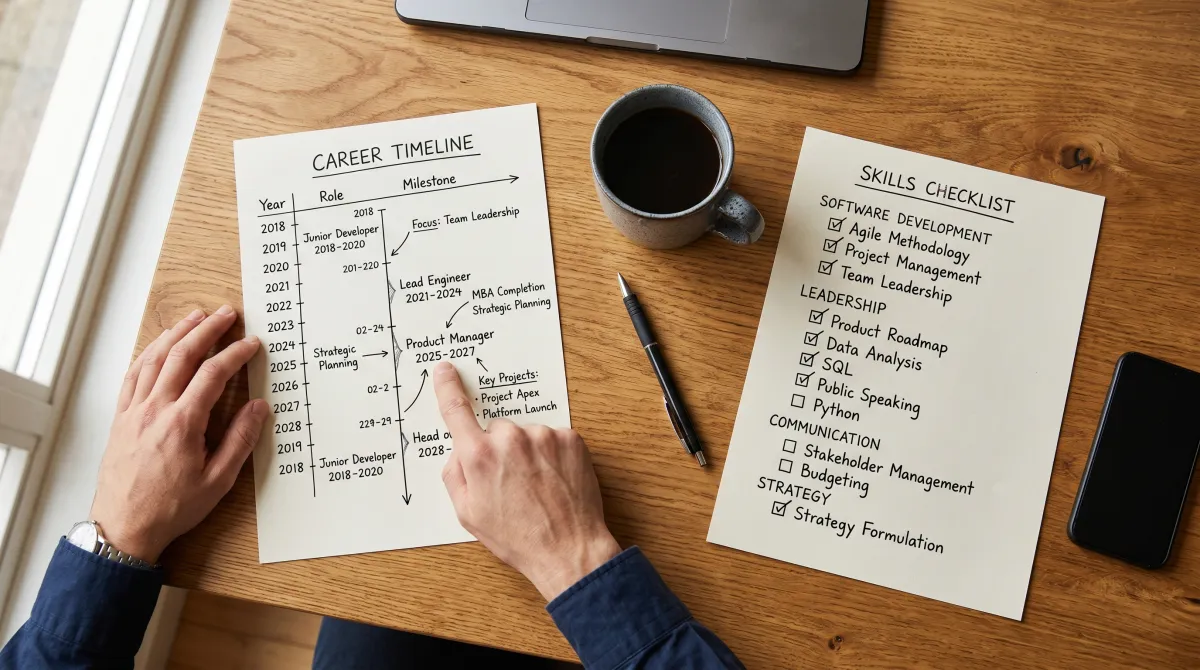 CAREER TIMELINE
Year
Role
Milestone
2018
2019
2020
2021
2022
2023
2024
2025
2026
2027
2028
2019
2018
2018
Junior Developer
2018-2020
Focus: Team Leadership
201-220
Lead Engineer
2021-2024
MBA Completion
Strategic Planning
02-24
Product Manager
2025-2027
Strategic
Planning
02-2
Key Projects:
• Project Apex
• Platform Launch
229-29
Head
2028-
Junior Developer
2018-2020
SKILLS CHECKLIST
SOFTWARE DEVELOPMENT
☑ Agile Methodology
☑ Project Management
☑ Team Leadership
LEADERSHIP
☑ Product Roadmap
☑ Data Analysis
☑ SQL
☑ Public Speaking
☐ Python
COMMUNICATION
☐ Stakeholder Management
☐ Budgeting
STRATEGY
☑ Strategy Formulation